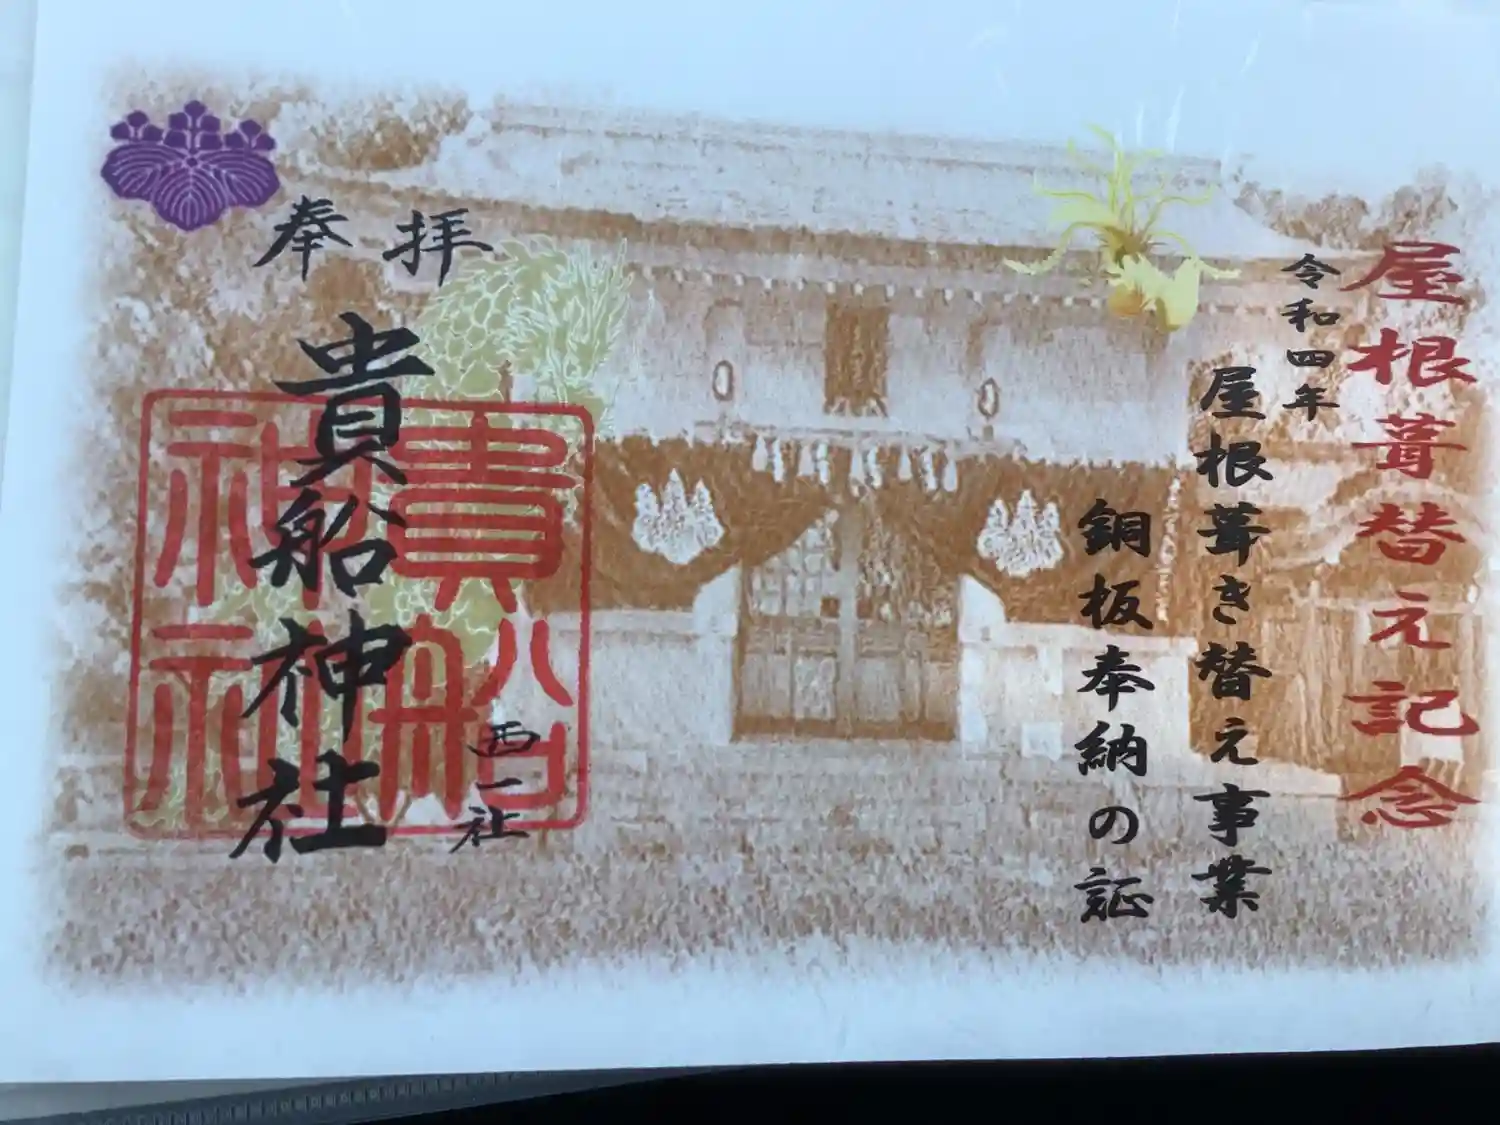 屋根葺替え記念
令和四年
屋根葺き替え事業
銅板奉納の証
奉拝
貴船神社
西一社
貴船神社